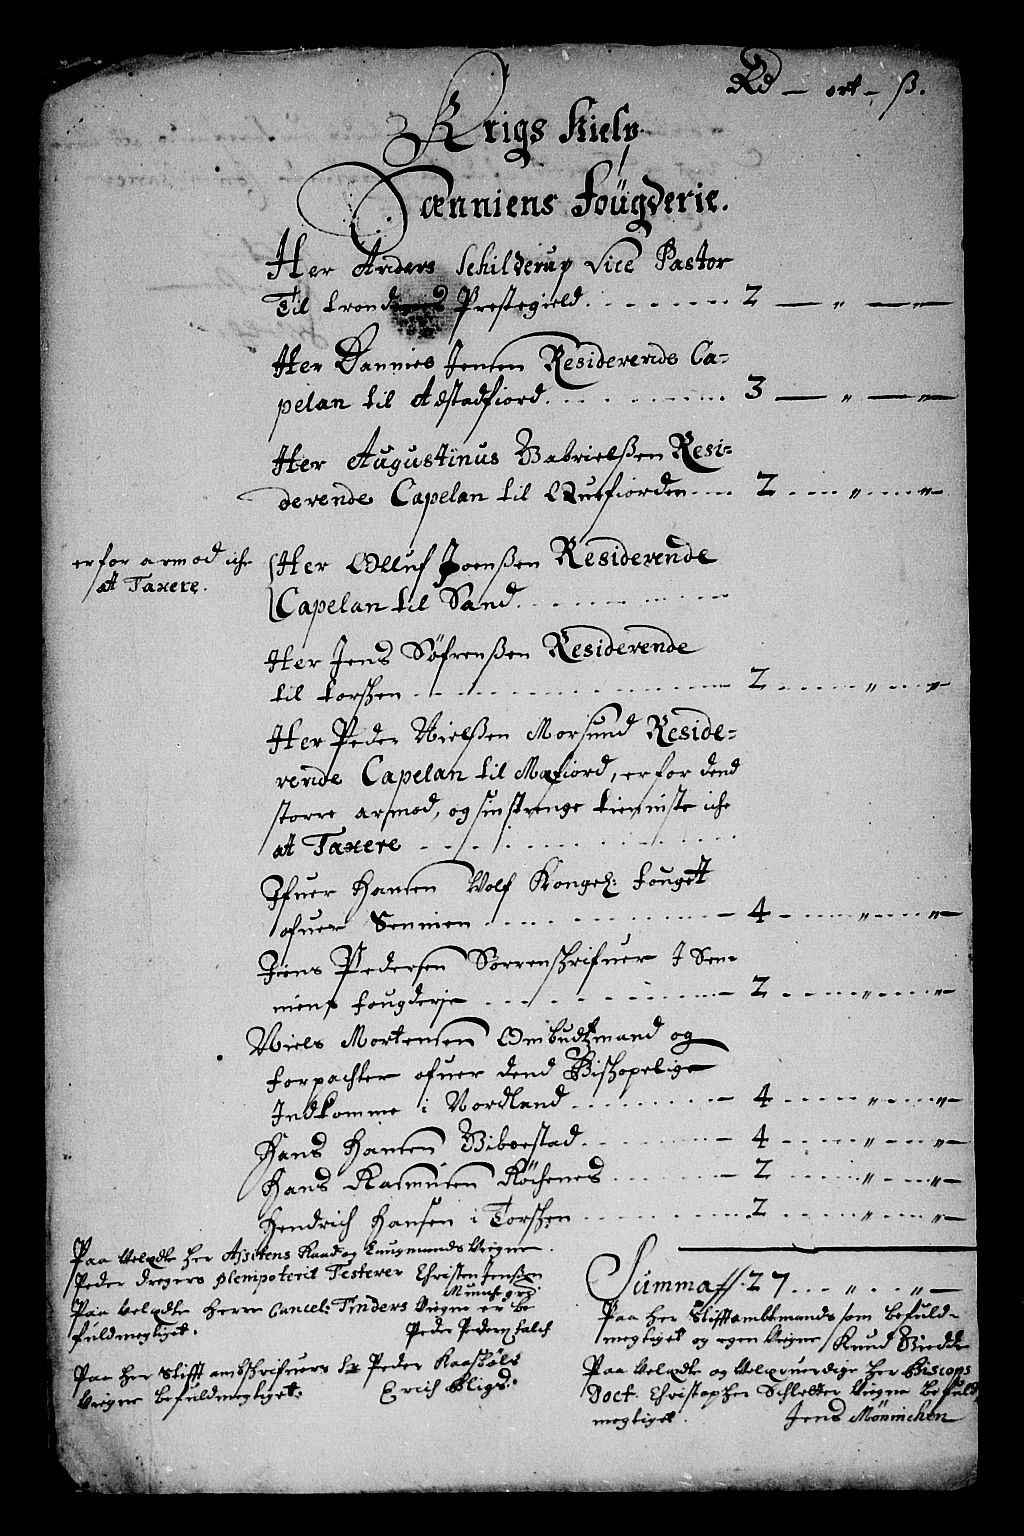 Rd — ort — ß.
Krigs Hielp
Sænniens Fougderie.
Her Anders Schilderup Vice Pastor
Til Prestegield. . . . . . . . 2 — " — "
Her Jensen Residerende Ca=
pelan til Astadfiord. . . . . . . . 3 — " — "
Her Augustinus Gabrielßen Resi=
derende Capelan til Quefiorden . . . 2 . . . . " . . . . "
er for armod iche
at Taxere.
Her Olluf Joenßen Residerende
Capelan til Sand. . . . . . . .
Her Jens Söfrenßen Residerende
til Torschen . . . . . . . . 2 . . . . " . . . . "
Her Peder Nielßen Morsund Reside=
rende Capelan til Mefiord, er for dend
storre armod, og sin strenge tienniste iche
at Taxere . . . . . . . .
Ifuer Hansen Wolf Kongel: Fougett
ofuer Sennien . . . . . . . . 4 . . . . " . . . . "
Jens Pedersen Sorrenschrifuer I Sen=
niens Fougderje . . . . . . . . 2 . . . . " . . . . "
Niels Mortensen Ombudtzmand og
Forpachter ofuer dend Bischopelige
Indkomme i Nordland . . . . . . . . 4 . . . . " . . . . "
Hans Hansen Giboestad . . . . . . . . 4 . . . . " . . . . "
Hans Rasmusen . . . . . . . . 2 . . . . " . . . . "
Hendrich Hansen i Torschen . . . . . . . . 2 . . . . " . . . . "
Summa ff. 27 . . . . " . . . . "
Paa Velædle Her Raad og Laugmands Vegne
Peder Dreyers plenipoterit Testerer Christen Jenßen
Paa Velædle Herr Cancel: Tinders Vegne er be
fuldmegtiget.
Peder Falch
Paa Her Stifft amtschrifuers Peder Kaasböls
Vegne befuldmegtiget.
Erich Bligs.
Paa Her Stifftambtmands som befuld=
megtiget og egen Vegne Knud Giedde
Paa Velædle og Velærverdige Her Biscops
Doct. Christopher Schletter Vegne befuld
megtiget.
Jens Mönnichen